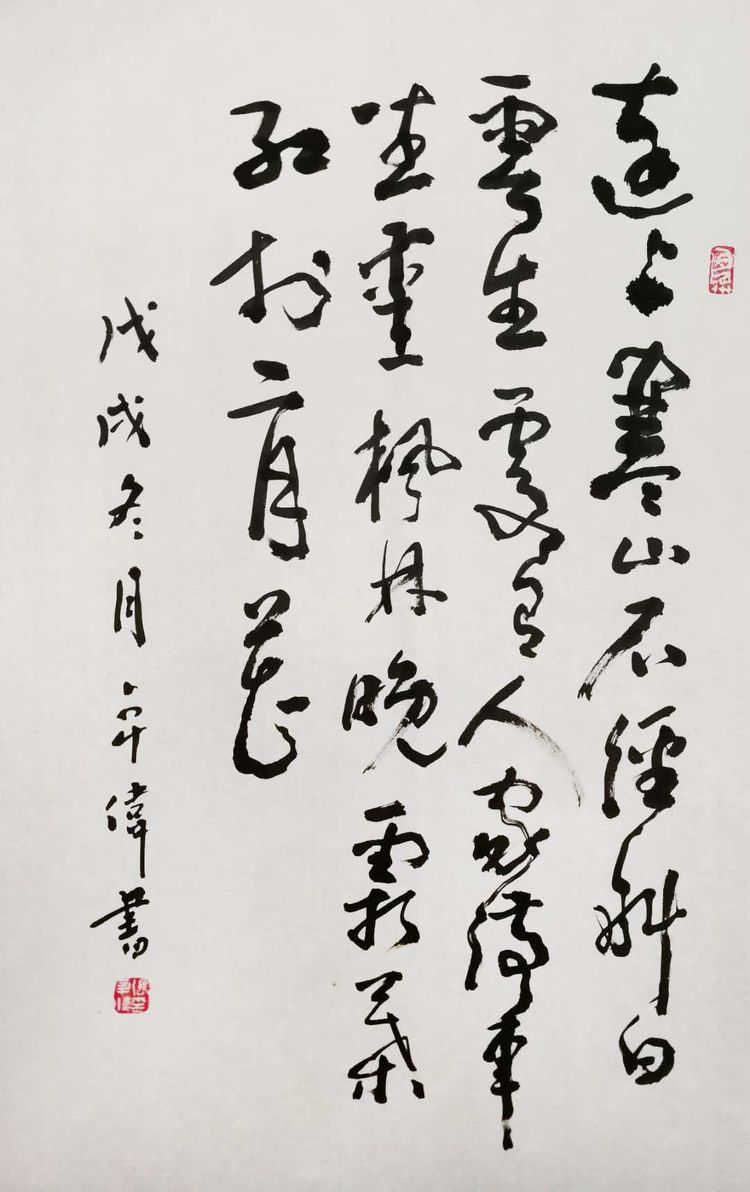 遠上寒山石徑斜白
雲生處有人家停車
坐愛楓林晚霜葉
紅於二月花
戊戌冬月偉書